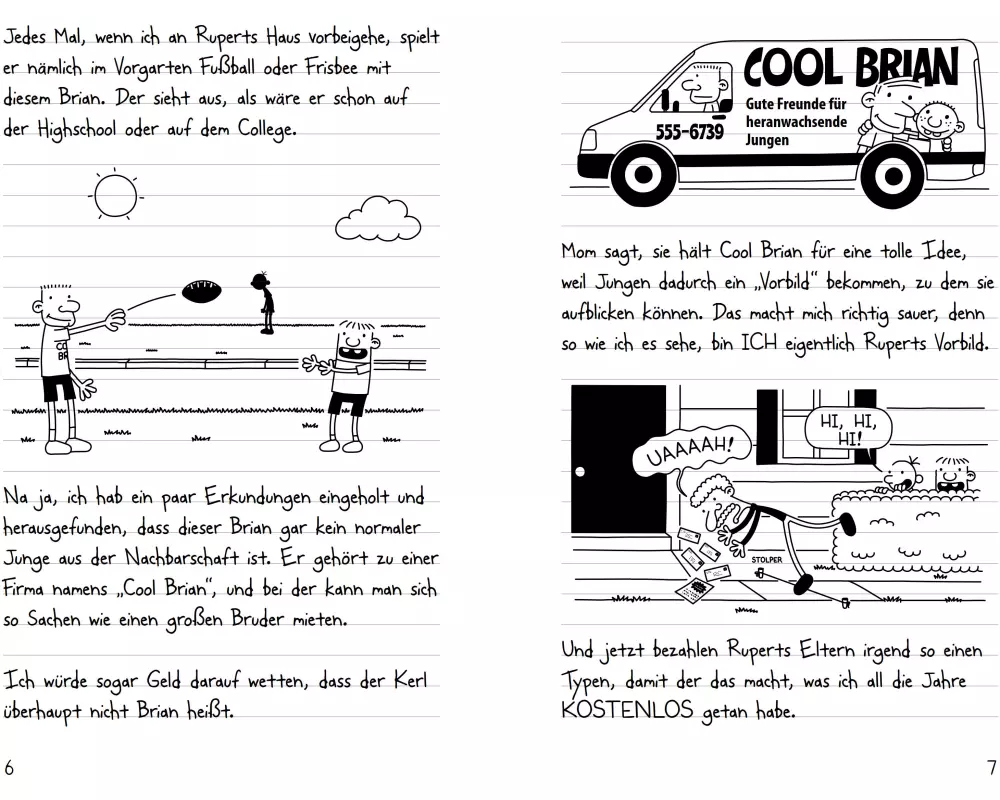 Jedes Mal, wenn ich an Ruperts Haus vorbeigehe, spielt
er nämlich im Vorgarten Fußball oder Frisbee mit
diesem Brian. Der sieht aus, als wäre er schon auf
der Highschool oder auf dem College.
CO
BR
Na ja, ich hab ein paar Erkundungen eingeholt und
herausgefunden, dass dieser Brian gar kein normaler
Junge aus der Nachbarschaft ist. Er gehört zu einer
Firma namens „Cool Brian“, und bei der kann man sich
so Sachen wie einen großen Bruder mieten.
Ich würde sogar Geld darauf wetten, dass der Kerl
überhaupt nicht Brian heißt.
6
COOL BRIAN
Gute Freunde für
heranwachsende
Jungen
555-6739
Mom sagt, sie hält Cool Brian für eine tolle Idee,
weil Jungen dadurch ein „Vorbild“ bekommen, zu dem sie
aufblicken können. Das macht mich richtig sauer, denn
so wie ich es sehe, bin ICH eigentlich Ruperts Vorbild.
UAAAAH!
HI, HI,
HI!
STOLPER
Und jetzt bezahlen Ruperts Eltern irgend so einen
Typen, damit der das macht, was ich all die Jahre
KOSTENLOS getan habe.
7